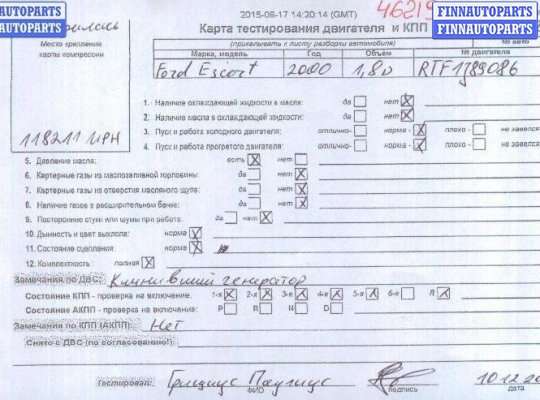 FINNAUTOPARTS
AUTOPARTS
2015-06-17 14:20:14 (GMT)
46219
FINNAUTOPARTS
AUTOPARTS
Карта тестирования двигателя и КПП
Место крепления
карты компрессии
(прикалывать к листу разборки автомобиля)
Марка, модель Год Объём № двигателя
Ford Escort 2000 1,8D RTF1J89086
118211 ИРН
1. Наличие охлаждающей жидкости в масле: да нет X
2. Наличие масла в охлаждающей жидкости: да нет X
3. Пуск и работа холодного двигателя: отлично- норма - X плохо - не завелся
4. Пуск и работа прогретого двигателя: отлично- норма - X плохо - не завелся
5. Давление масла: есть X нет
6. Картерные газы из маслозаливной горловины: да нет X
7. Картерные газы из отверстия масляного щупа: да нет X
8. Наличие газов в расширительном бачке: да нет X
9. Посторонние стуки или шумы при работе: да нет X
10. Дымность и цвет выхлопа: норма X
11. Состояние сцепления: норма X
12. Комплектность: полная X
Замечания по ДВС: Клинивший генератор
Состояние КПП - проверка на включение: 1-я X 2-я X 3-я X 4-я X 5-я X 6-я R X
Состояние АКПП - проверка на включение: P R N D
Замечания по КПП (АКПП): Нет
Снято с ДВС (по согласованию!):
Тестировал: Грицюс Паулюс
ФИО подпись дата
10.12.20